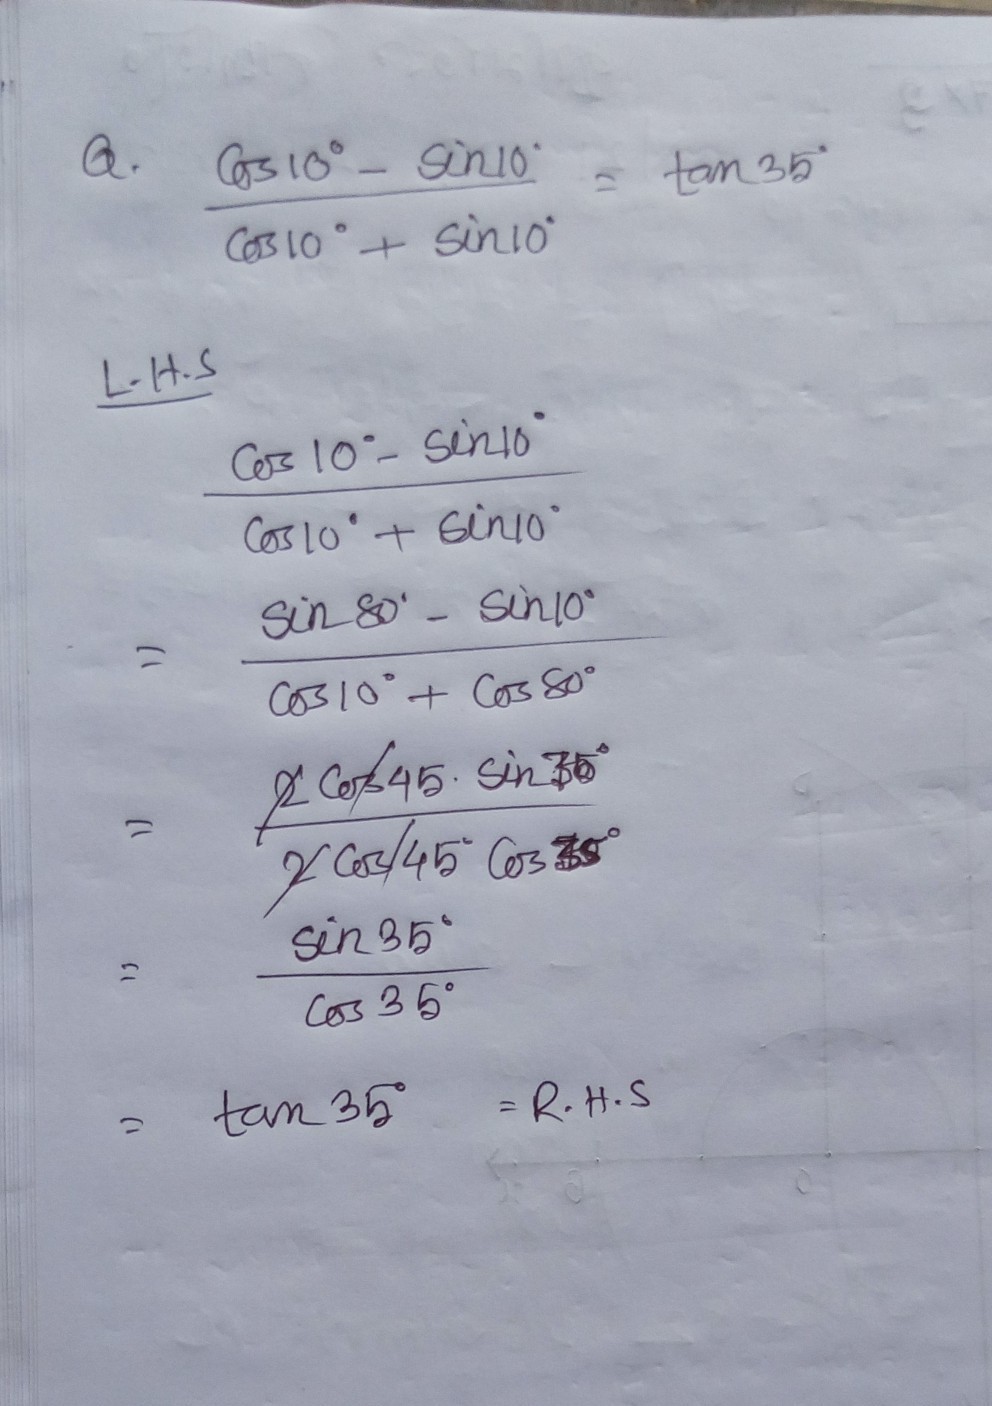 Q. Cos10° - Sin10° = tan35°
Cos10° + Sin10°
L.H.S
Cos10° - Sin10°
Cos10° + Sin10°
= Sin80° - Sin10°
Cos10° + Cos80°
= 2 Cos45. Sin35°
2 Cos45° Cos35°
= Sin35°
Cos35°
= tan35° = R.H.S